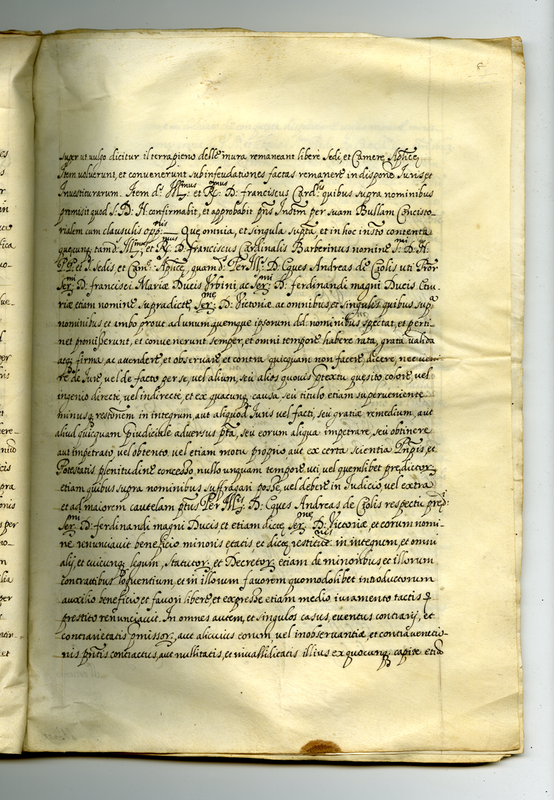 super ut vulgo dicitur il terrapieno delle mura remaneant libere Sedi, et Camere Aplice,
Item voluerunt, et convenerunt subinfeudationes factas remanere in dispone Iuris et
Investiturarum. Item d. Illmus: et Rmus: D: franciscus Cardlis quibus supra nominibus
promisit quod S. D: N: confirmabit, et approbabit pns Instm per suam Bullam Concisto-
rialem cum clausulis opp: Que omnia, et singula supta, et in hoc insto contenta
quecunq tam d. Illmus, et Rmus D: franciscus Cardinalis Barberinus nomine Smi D: N:
PP. et S. Sedis et Cam. Aplice, quam d. Per Ill. D: Eques Andreas de Ciolis uti Pror
Sermi D: francisci Mariæ Ducis Urbini, ac Sermi D: ferdinandi magni Ducis Etru-
riæ etiam nomine supradicte Serme: D: Victoriæ ac omnibus et singulis quibus supa
nominibus et ambo prout ad unumquemque ipsorum dd: nominibus spectat, et perti-
net promiserunt, et convenerunt semper, et omni tempore habere rata, grata valida
atq firma, ac attendere et observare et contra quicquam non facere, dicere, nec
re de Iure, vel de facto per se, vel alium, seu alios quovis ptextu quesito colore, vel
ingenio directe, vel indirecte, et ex quacunq causa seu titulo etiam superveniente
minusq restonem in integrum, aut aliquod Iuris vel facti, seu gratiæ remedium, aut
aliud quicquam Piudiciale adversus pta, seu eorum aliqua impetrare, seu obtinere
aut impetrato, vel obtento, vel etiam motu proprio aut ex certa scientia Pnpis, et
Potestatis plenitudine concesso, nullo unquam tempore uti, vel quemlibet predictor
etiam quibus supra nominibus suffragari posse, vel debere in Iudicio, vel extra
et ad maiorem cautelam ptus Per Ill. D: Eques Andreas de Ciolis respectu pred:
Sermi D: ferdinandi magni Ducis et etiam dicte Serme D: Victoriæ, et eorum nomi-
ne renunciavit beneficio minoris etatis, et dicte restitonis in integrum, et omni
alij, et cuicunq legum, Statutor: et Decretor: etiam de minoribus et illorum
contractibus loquentium, et in illorum favorem quomodolibet introductorum
auxilio beneficio, et favori libere, et expresse etiam medio iuramento tactis
prestito renunciavit. In omnes autem, et singulos casus, eventus contrarij, et
contrarietatis pmissor:, aut alicuius eorum vel inobservantiæ, et contraventio-
nis pntis contractus, aut nullitatis, et invalliditatis illius ex quocunq capite etia